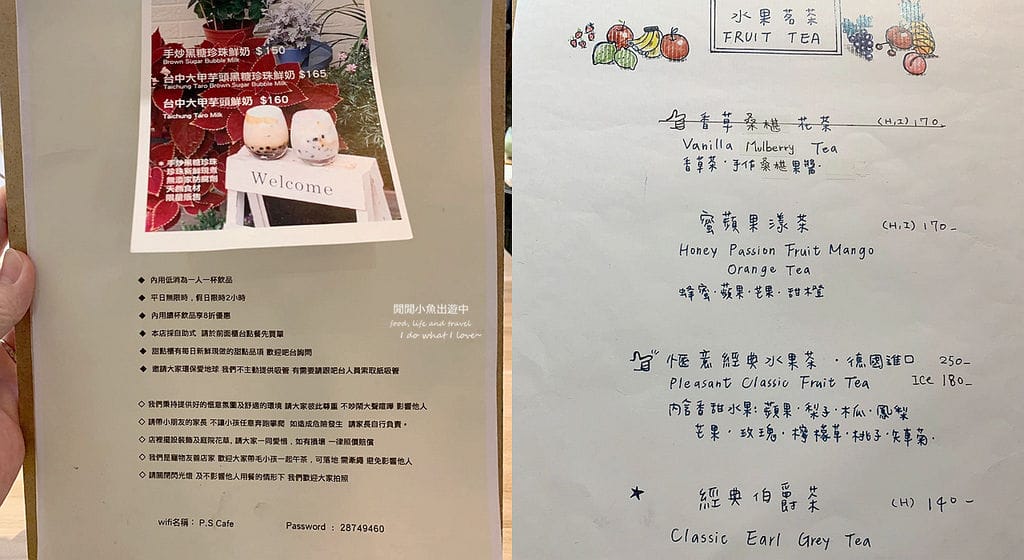 手炒黑糖珍珠鮮奶 $150
Brown Sugar Bubble Milk
台中大甲芋頭黑糖珍珠鮮奶 $165
Taichung Taro Brown Sugar Bubble Milk
台中大甲芋頭鮮奶 $160
Taichung Taro Milk
手炒黑糖珍珠
珍珠新鮮現煮
無添加防腐劑
天然食材
限量販售
Welcome
◆ 內用低消為一人一杯飲品
◆ 平日無限時，假日限時2小時
◆ 內用續杯飲品享8折優惠
◆ 本店採自助式 請於前面櫃台點餐先買單
◆ 甜點櫃有每日新鮮現做的甜點品項 歡迎吧台詢問
◆ 邀請大家環保愛地球 我們不主動提供吸管 有需要請跟吧台人員索取紙吸管
◇ 我們秉持提供好的愜意氛圍及舒適的環境 請大家彼此尊重 不吵鬧大聲喧嘩 影響他人
◇ 請帶小朋友的家長 不讓小孩任意奔跑攀爬 如造成危險發生 請家長自行負責。
◇ 店裡擺設裝飾及庭院花草, 請大家一同愛惜, 如有損壞 一律照價賠償
◇ 我們是寵物友善店家 歡迎大家帶毛小孩一起午茶, 可落地 需牽繩 避免影響他人
◇ 請關閉閃光燈 及不影響他人用餐的情形下 我們歡迎大家拍照
wifi名稱： P.S Cafe Password : 28749460
閒閒小魚出遊中
food, life and travel
I do what I love~
水果茗茶
FRUIT TEA
香草桑椹花茶 (H,I) 170.
Vanilla Mulberry Tea
香草茶·手作桑椹果醬.
蜜蘋果漾茶 (H,I) 170-
Honey Passion Fruit Mango
Orange Tea
蜂蜜·蘋果·芒果·甜橙
愜意經典水果茶·德國進口 250-
Pleasant Classic Fruit Tea ICE 180-
內含香甜水果:蘋果·梨子·木瓜·鳳梨
芒果·玫瑰·檸檬草·桃子·矢車菊.
★ 經典伯爵茶 (H) 140-
Classic Earl Grey Tea